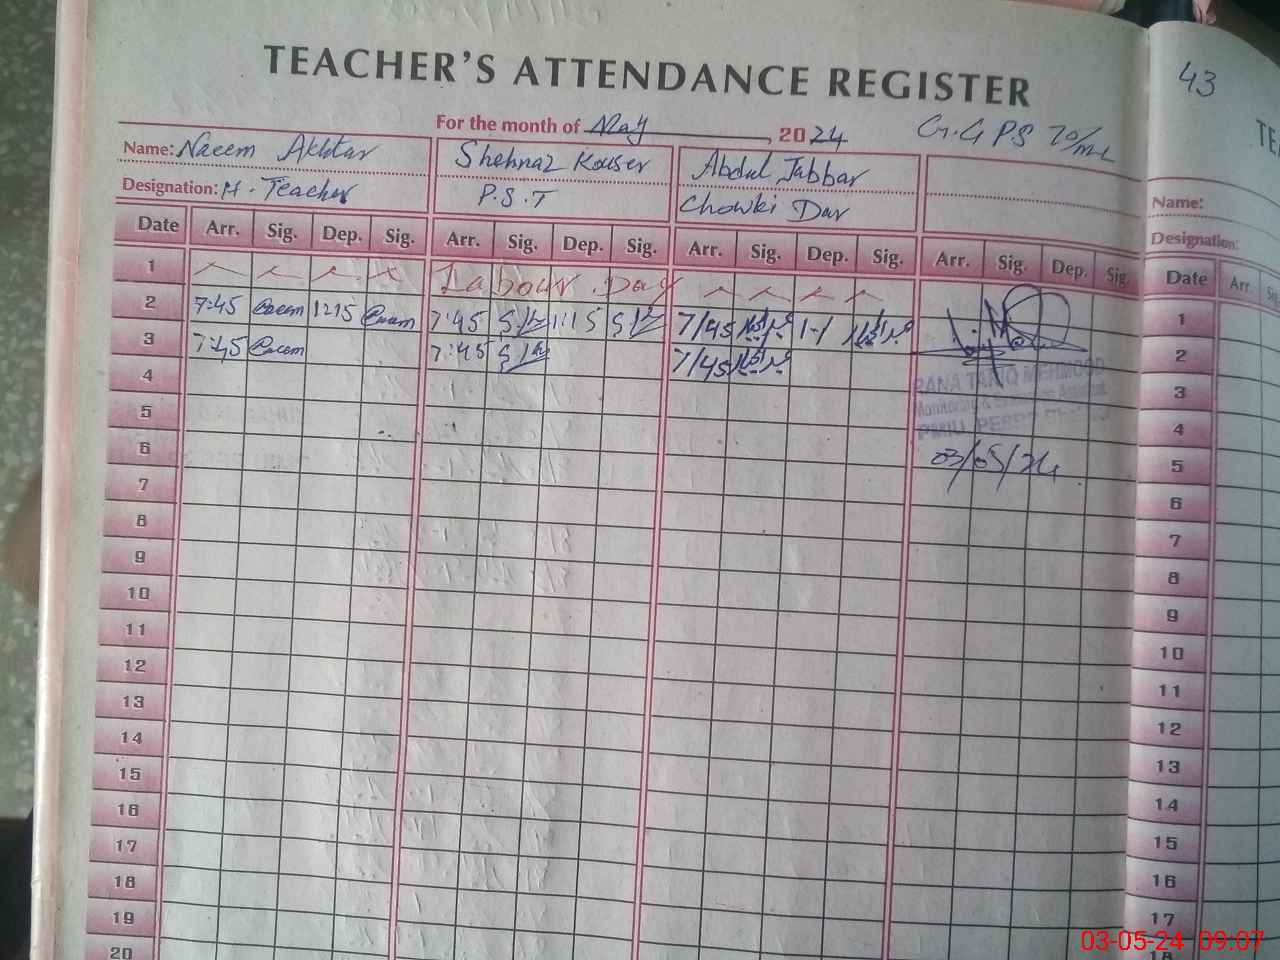 43
TEACHER'S ATTENDANCE REGISTER
For the month of May, 2024 G.G PS 70/ML
Name: Naeem Akhtar Shehnaz Kouser Abdul Jabbar
Designation: H. Teacher P.S.T Chowki Dar
Date Arr. Sig. Dep. Sig. Arr. Sig. Dep. Sig. Arr. Sig. Dep. Sig. Arr. Sig. Dep. Sig.
1 Labour Day
2 7:45 1:15 7:45 1:15 7/45 1-1
3 7:45 7:45 7/45
4
RANA TARIQ MEHMOOD
5
Monitoring & Evaluation Assistant
PMIU, PERP
6
03/05/24
7
8
9
10
11
12
13
14
15
16
17
18
19
20
TE
Name:
Designation:
Date Arr. Si
1
2
3
4
5
6
7
8
9
10
11
12
13
14
15
16
17
18
03-05-24 09:07